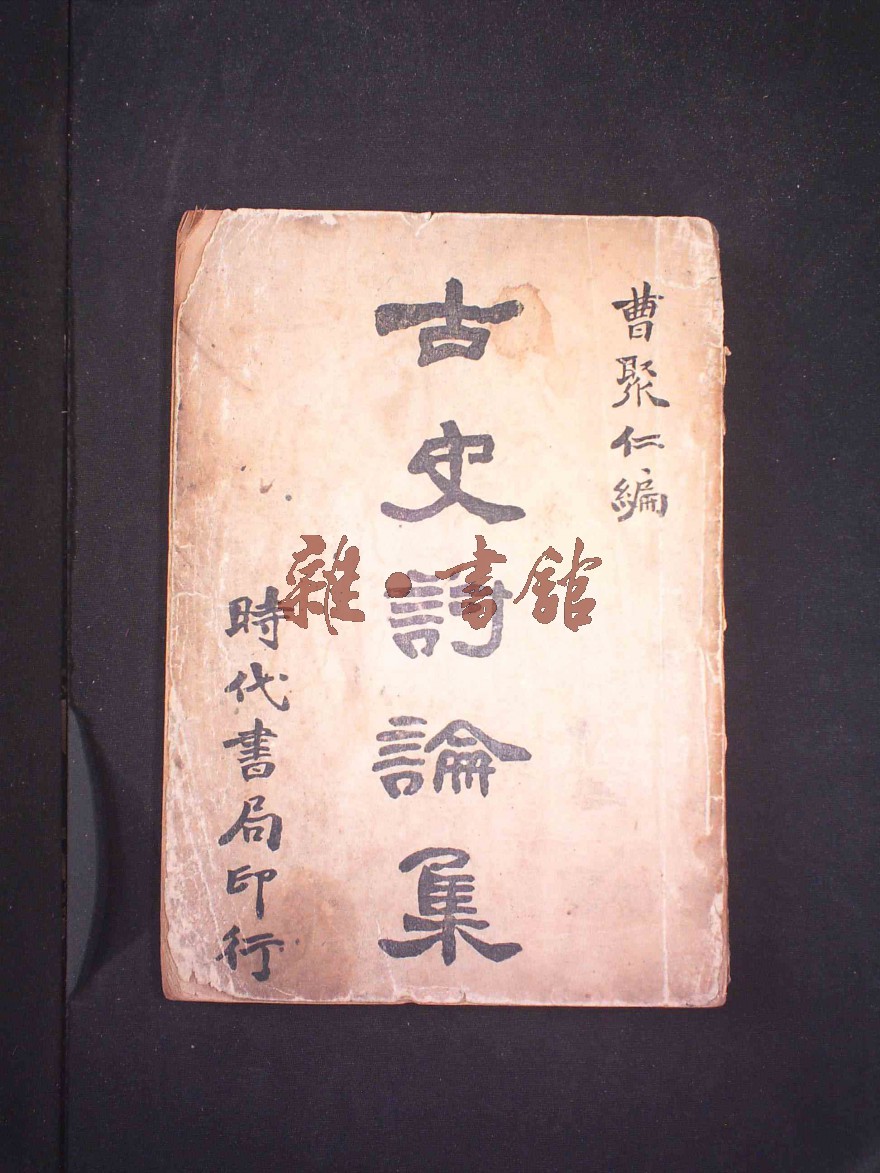 曹聚仁編
古史討論集
時代書局印行
雜·書館